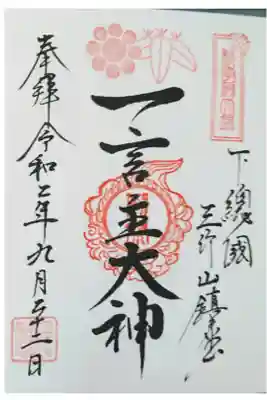 下總國
三竹山鎮座
一言主大神
奉拜 令和二年九月二十一日